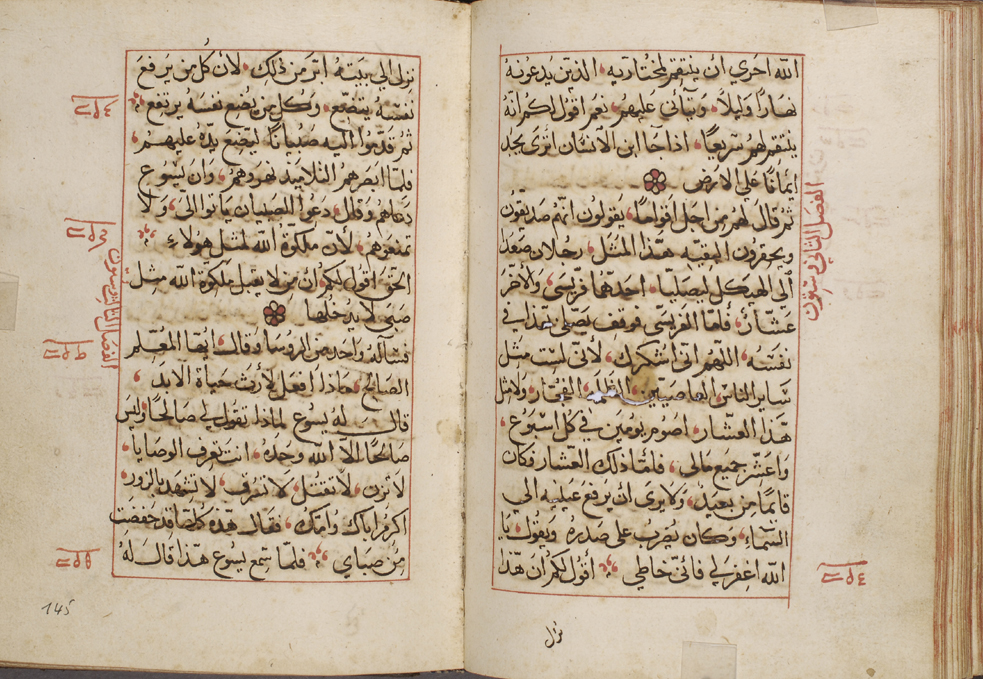 الله احري ان ينتقم لمختاريه الذين يدعونه
نهارًا وليلًا ويتأني عليهم نعم اقول لكم انه
ينتقم لهم سريعًا اذا جا ابن الانسان اترى يجد
ايمانًا علي الارض
ثم قال لهم من اجل اقواما يقولون انهم صديقون
ويحقرون البقيه هذا المثل رجلان صعدا
الي الهيكل ليصليا احدهما فريسى والاخر
عشار فاما الفريسى فوقف يصلي بهذا في
نفسه اللهم اني اشكرك لأني لست مثل
ساير الناس العاصيين الظلمه الفجار ولا مثل
هذا العشار اصوم يومين في كل اسبوع
واعشر جميع مالي فلما ذلك العشار فكان
قايمًا من بعيد ولا يرى ان يرفع عينيه الي
السماء وكان يضرب على صدره ويقول يا
الله اغفر لي فاني خاطي اقول لكم ان هذا
الفصل الثاني وستون
نزل
نزل الي بيته ابر من ذلك لأن كل من يرفع
نفسه يتضع وكل من يضع نفسه يرتفع
ثم قدموا اليه صبيانًا ليضع يده عليهم
فلما ابصرهم التلاميد نهروهم وان يسوع
دعاهم وقال دعوا الصبيان ياتوا اليّ ولا
تمنعوهم لأن ملكوة الله لمثل هولاء
الحق اقول لكم ان من لا يقبل ملكوة الله مثل
صبي لا يدخلها
فسآله واحد من الروسا وقال ايها المعلم
الصالح ماذا افعل لأرث حياة الأبد
قال له يسوع لماذا تقول لي صالحًا وليس
صالحًا الا الله وحده انت تعرف الوصايا
لا تزن لا تقتل لا تسرق لا تشهد بالزور
اكرم اباك وامك فقال هذه كلها قد حفظت
من صباي فلما سمع يسوع هذا قال له
145